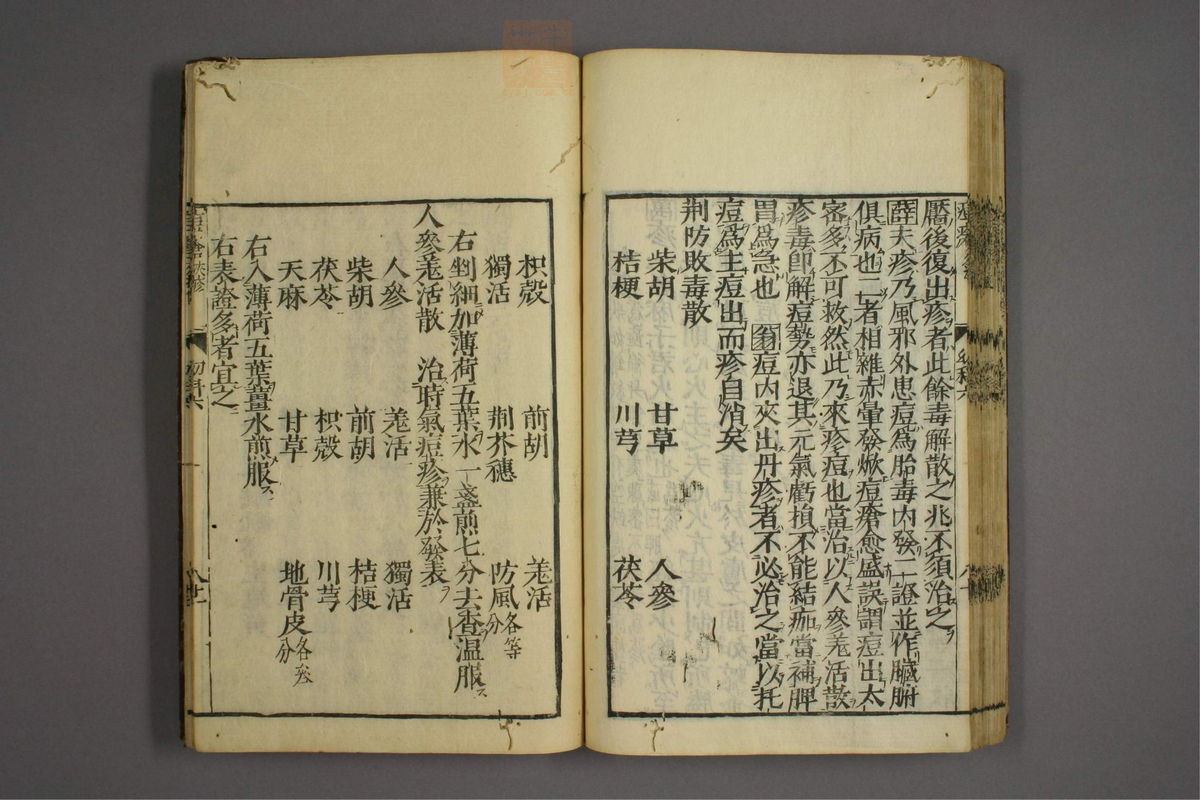 靨後復出疹者此餘毒解散之兆不須治之
薛夫疹乃風邪外患痘爲胎毒内發二證並作臟腑
俱病也二者相雜赤暈發焮痘瘡愈盛誤謂痘出太
密多不可救然此乃夾疹痘也當治以人參羗活散
疹毒卽解痘勢亦退其元氣虧損不能結痂當補脾
胃爲急也 翁痘内夾出丹疹者不必治之當以托
痘爲主痘出而疹自消矣
荆防敗毒散
柴胡 甘草 人參
桔梗 川芎 茯苓
枳殻 前胡 羗活
獨活 荆芥穗 防風各等分
右剉細加薄荷五葉水一盞煎七分去渣温服
人參羗活散 治時氣痘疹兼於發表
人參 羗活 獨活
柴胡 前胡 桔梗
茯苓 枳殻 川芎
天麻 甘草 地骨皮各等分
右入薄荷五葉薑水煎服
右表證多者宜之